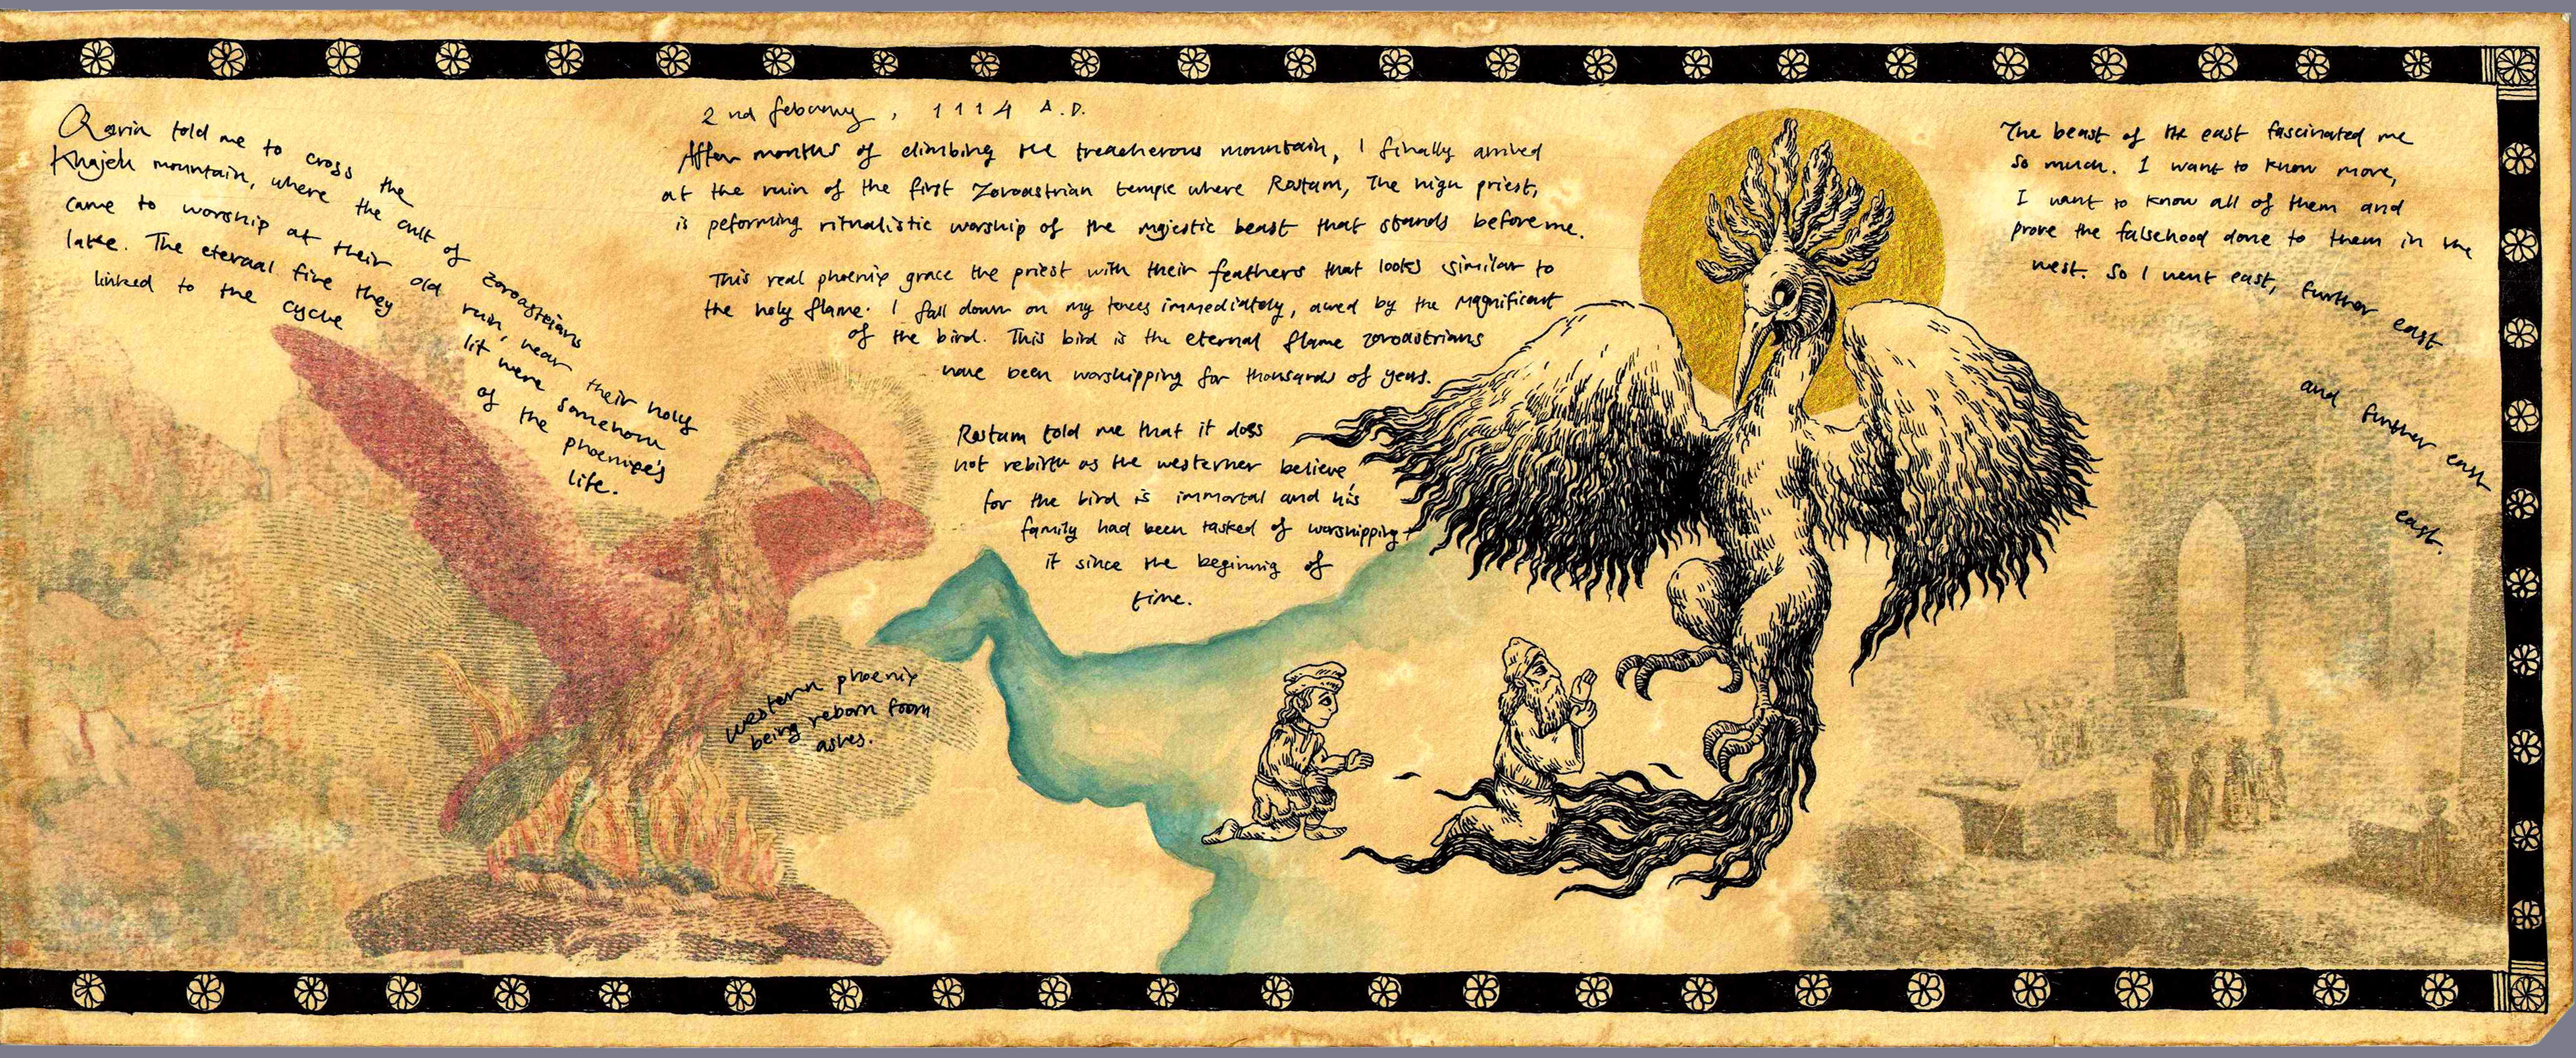 Qarin told me to cross the
Khajeh mountain, where the cult of Zoroastrians
came to worship at their old ruin, near their holy
lake. The eternal fire they lit were somehow
linked to the cycle of the phoenixe's
life.
western phoenix
being reborn from
ashes.
2nd february, 1114 A.D.
After months of climbing the treacherous mountain, I finally arrived
at the ruin of the first Zoroastrian temple where Rostam, The high priest,
is peforming ritualistic worship of the majestic beast that stands before me.
This real phoenix grace the priest with their feathers that looks similar to
the holy flame. I fall down on my knees immediately, awed by the magnificant
of the bird. This bird is the eternal flame zoroastrians
have been worshipping for thousands of years.
Rostam told me that it does
not rebirth as the westerner believe
for the bird is immortal and his
family had been tasked of worshipping
it since the beginnig of
time.
The beast of the east fascinated me
so much. I want to know more,
I want to know all of them and
prove the falsehood done to them in the
west. So I went east, further east
and further east
east.